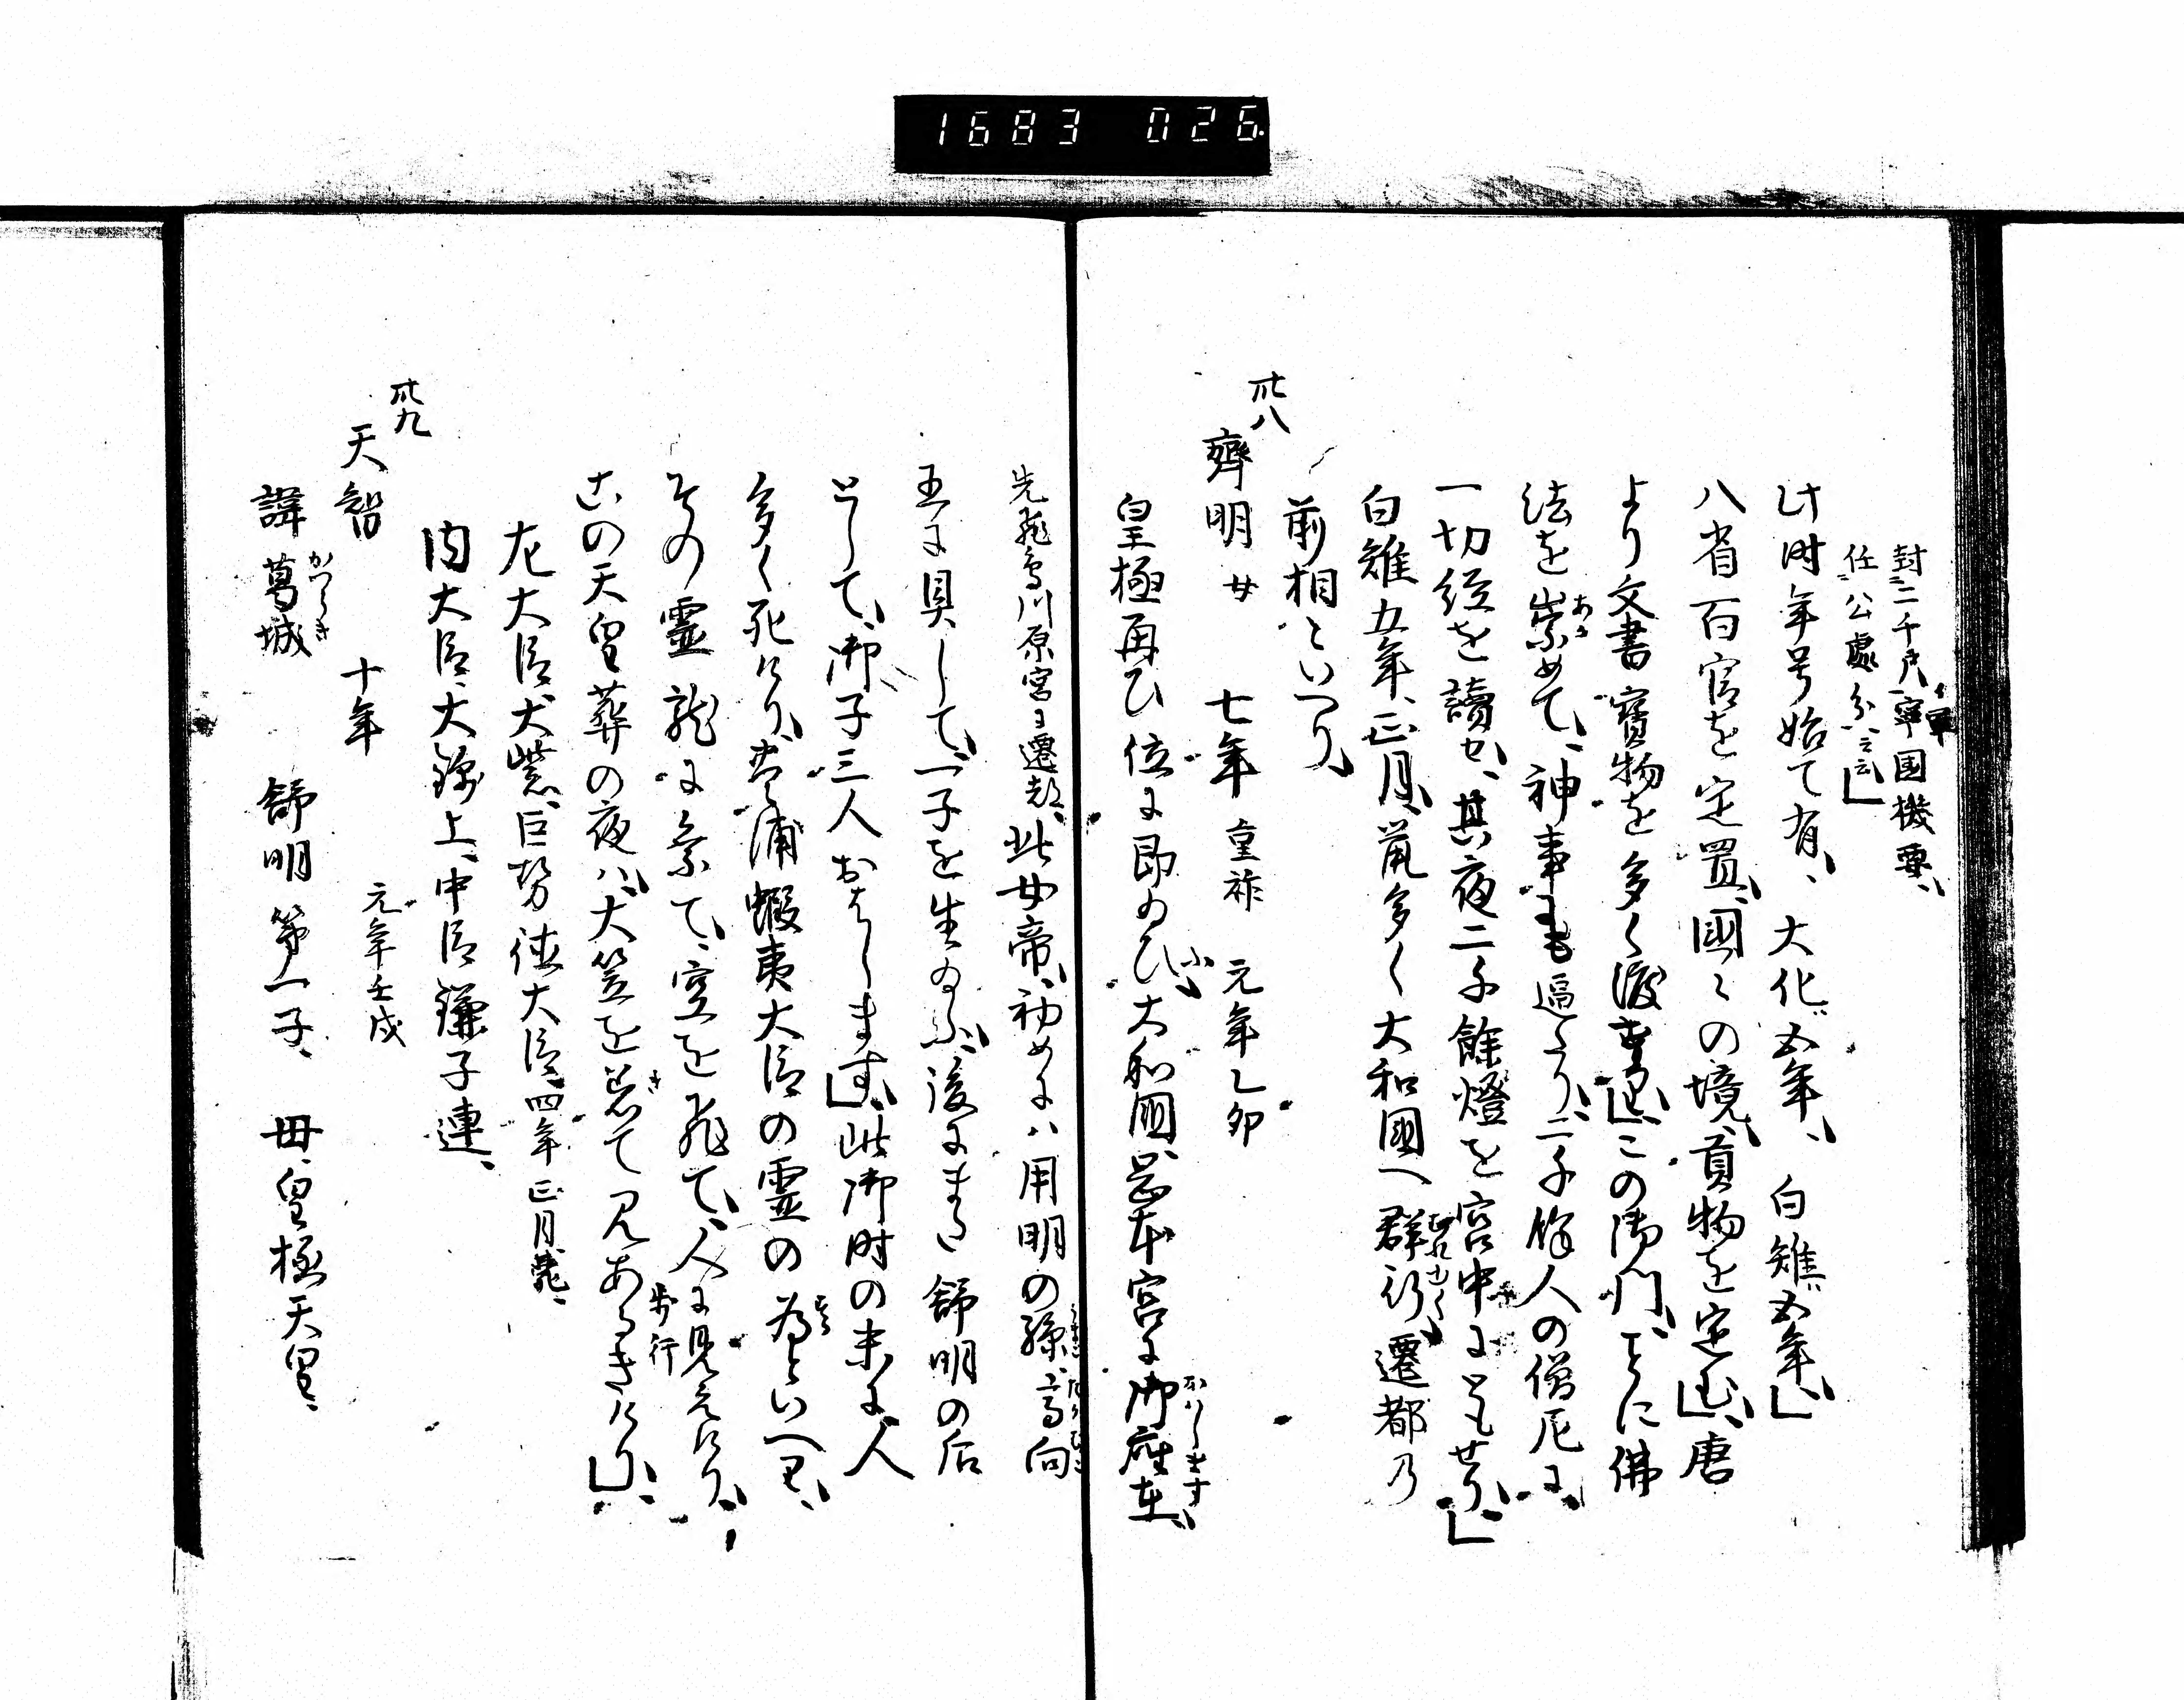 1683 026.
封二千戸寧国機要、
軍
任公處分云云」
此時年号始て有、大化五年、白雉五年」
八省百官を定置、國々の境、貢物を定む」、唐
より文書寳物を多く渡せり」、この御門、ことに佛
法を崇めて、神事にも過たり、二千餘人の僧尼に
あか
一切経を讀せ、其夜二千餘燈を宮中にともせり、」
白雉五年、正月、鼠多く大和國へ群行、遷都乃
前相といへり、
卅八
齊明 女 七年 重祚 元年乙卯
皇極再ひ位に即ゐひ、大和國、岡本宮に御座在、
ふ
おハします
先飛鳥川原宮に遷都、此女帝、初めにハ用明の孫、高向
王に具して、一子を生ゐふ、後にまた舒明の后
として、御子三人おはします」、此御時の末に、人
多く死けり、豊浦蝦夷大臣の霊の為といへり、
その霊龍に乗て、空を飛て、人に見えけり、
この天皇葬の夜ハ、大笠を着て見あるきけり」、
き
歩行
左大臣、大紫、巨勢徳大臣、四年正月薨、
内大臣、大錦上、中臣鎌子連、
卅九
天智 十年 元年壬戌
諱葛城 舒明第一子、母、皇極天皇、
かつらき